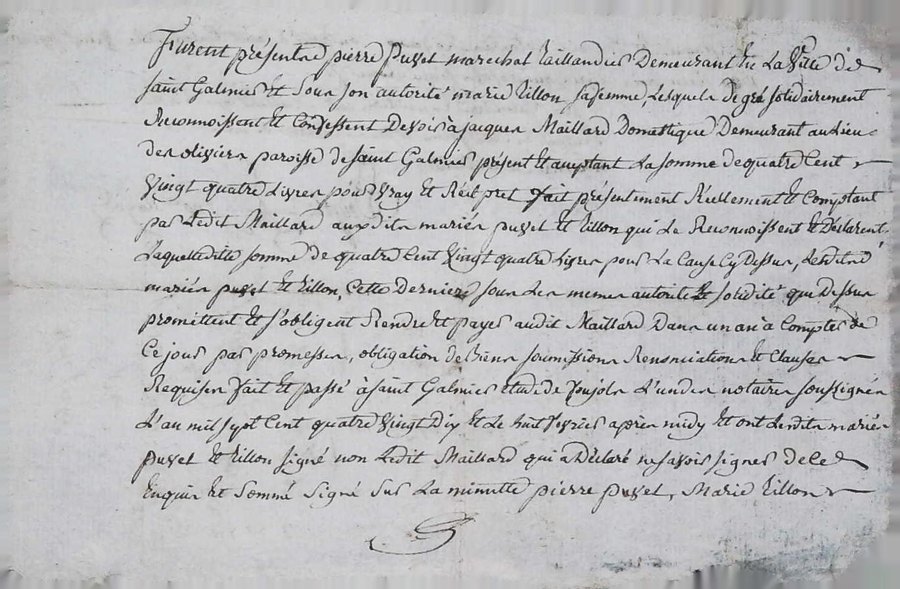 Furent présents pierre Puvet marechal taillandier Demeurant En La Ville de
saint Galmier Et sous son autorité marie Tillon sa femme, Lesquels de gré solidairement
Reconnoissent Et Confessent Devoir à jacques Maillard Domestique Demeurant au Lieu
des oliviers paroisse de saint Galmier présent Et acceptant La somme de quatre Cent
Vingt quatre Livres pour vray Et Réel pret fait présentement Réellement Et Comptant
par Ledit Maillard auxdits mariés puvet Et Tillon qui Le Reconnoissent Et Déclarent,
Laquelle dite somme de quatre Cent Vingt quatre Livres pour La Cause Cy Dessus, Lesdits
mariés puvet Et Tillon, Cette Derniere sous Les memes autorité Et solidité que Dessus
promettent Et s'obligent Rendre Et payer audit Maillard Dans un an à Compter de
Ce jour par promesses, obligation de Biens soumissions Renonciations Et Clauses
Requises fait Et passé à saint Galmier étude de Poujols L'un des notaires soussignés
L'an mil sept Cent quatre Vingt Dix Et Le huit fevrier après midy Et ont Lesdits mariés
puvet Et Tillon signé non Ledit Maillard qui a Déclaré ne savoir signer de Ce
Enquis Et Sommé Signé Sur La minutte pierre puvet, Marie Tillon